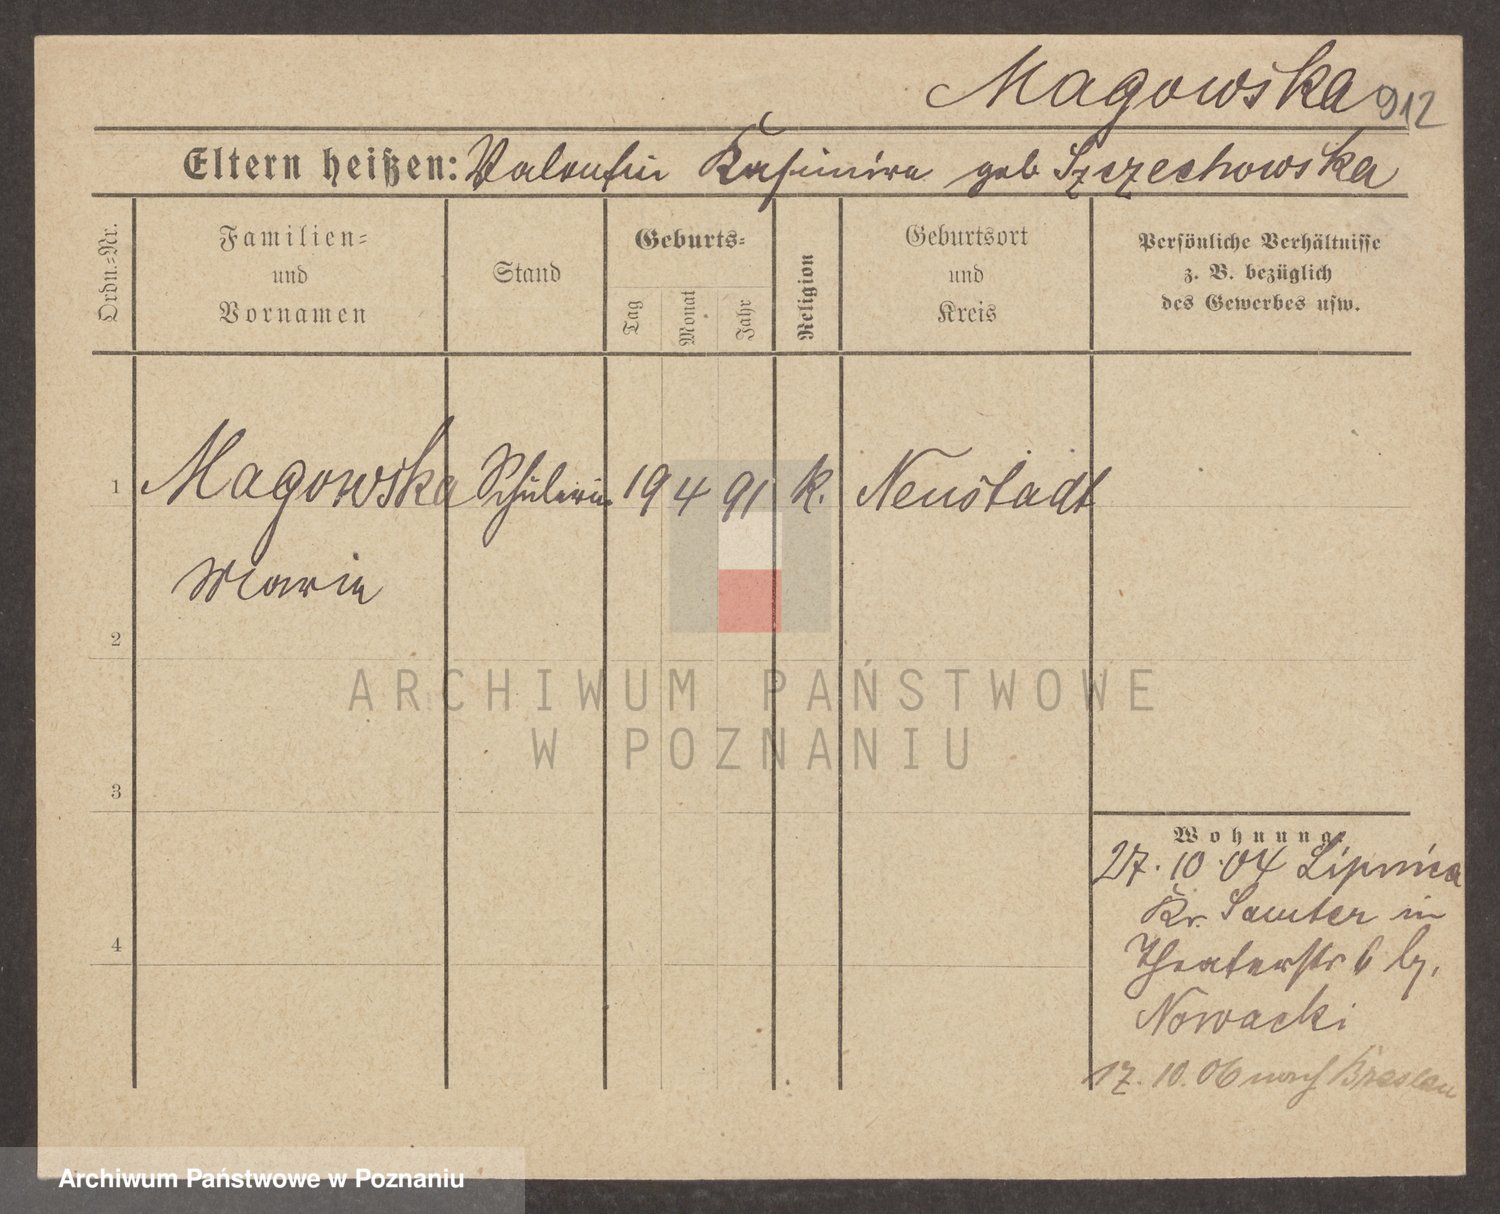 Magowska 912
Eltern heißen: Valentin Kasimira geb Szczechowska
Ordn.-Nr.
Familien-
und
Vornamen
Stand
Geburts-
Tag
Monat
Jahr
Religion
Geburtsort
und
Kreis
Persönliche Verhältnisse
z. B. bezüglich
des Gewerbes usw.
1 Magowska Schülerin 19 4 91 k. Neustadt
Maria
2
3
4
Wohnung:
27. 10 04 Lipnica
Kr. Samter in
Theaterstr 6 by.
Nowacki
17. 10. 06 nach Breslau
ARCHIWUM PAŃSTWOWE
W POZNANIU
Archiwum Państwowe w Poznaniu